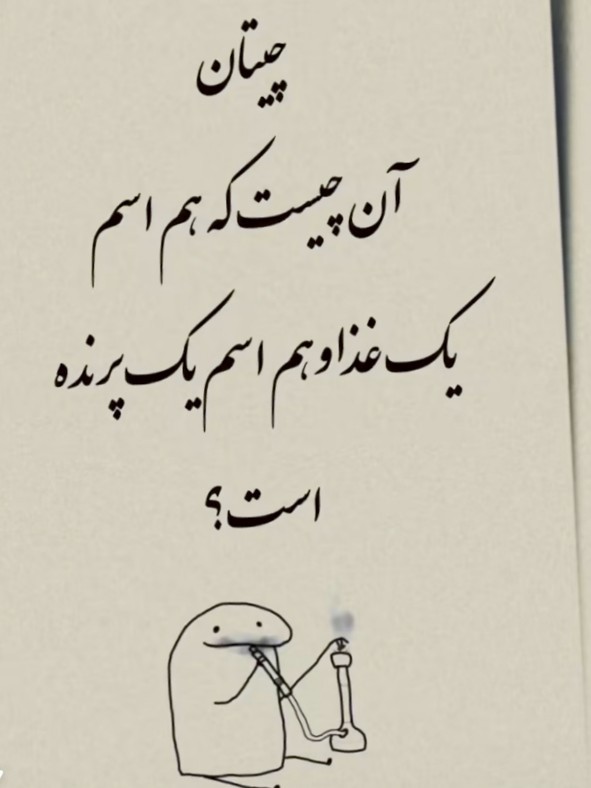 چیتان
آن چیست که هم اسم
یک غذا و هم اسم یک پرنده
است؟